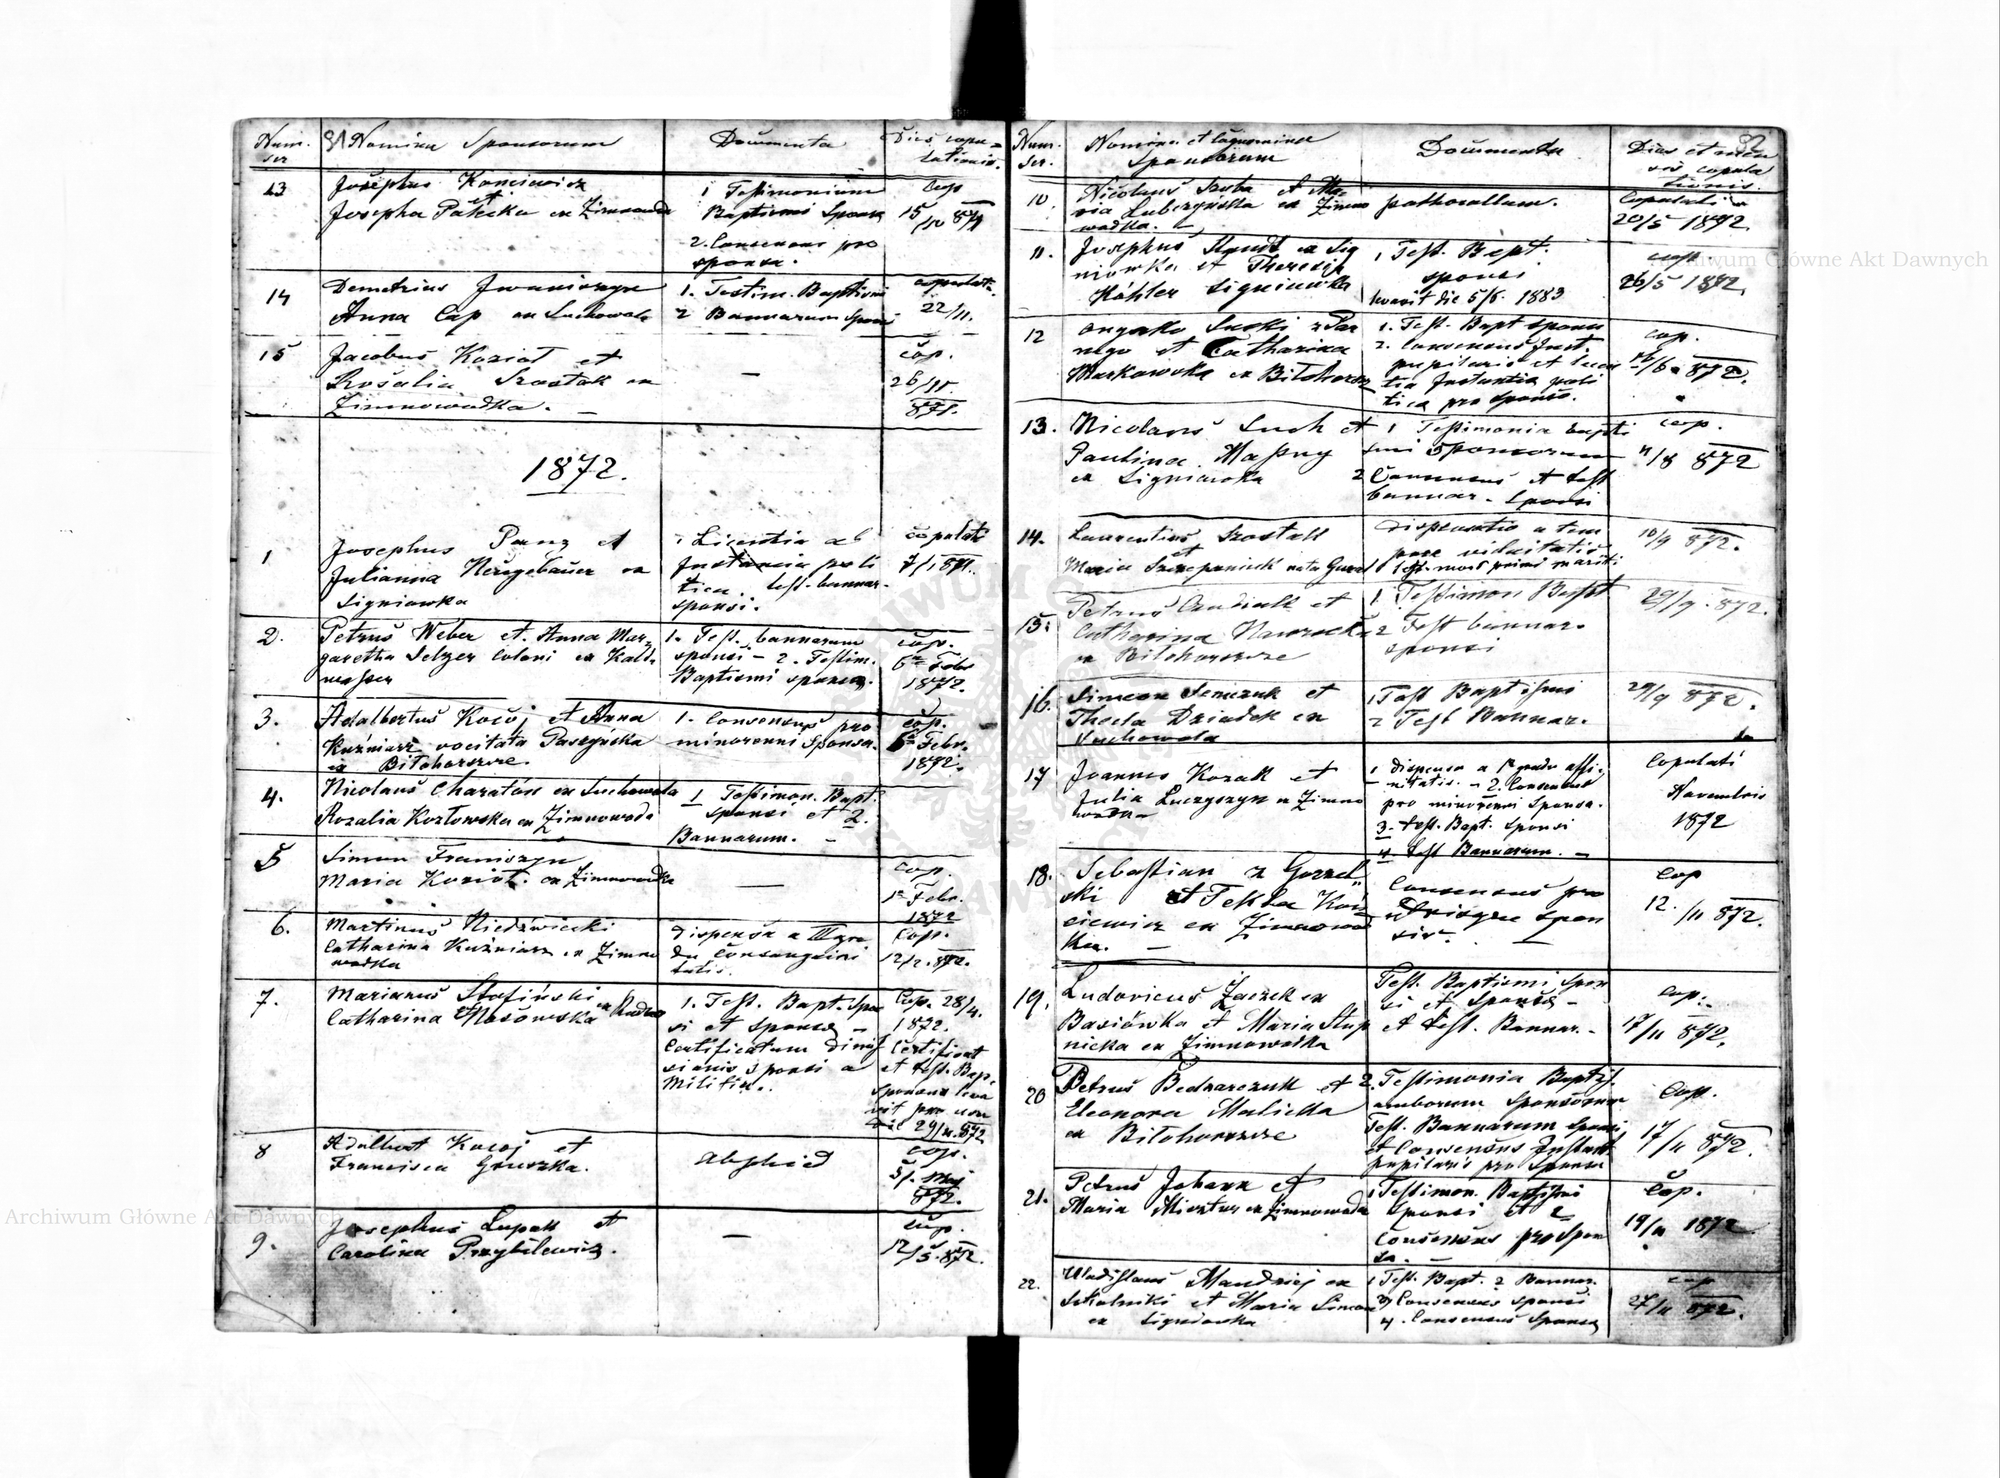 Num. ser
81 Nomina Sponsorum
Documenta
Dies copu=
lationis.
13
Josephus
et
Josepha Patecka ex Zimnowoda
1 Testimonium
Baptismi Sponsa
2. Consensus pro
sponsa.
Cop
15/10 871
14
Demetrius Iwaniszyn
Anna Cap ex Suchowola
1. Testim. Baptismi
2 Bannarum Sponsi
copulati.
22/11.
15
Jacobus Kozioł et
Rosalia Szostak ex
Zimnowodka. —
—
cop.
26/11
871.
1872.
1
Josephus Panz et
Julianna Neugebauer ex
Signiowka
1 Licentia ab
Instancia poli
tica. test. bannar.
sponsi.
copulati
7/1 871.
2.
Petrus Weber et Anna Mar-
garetha Selzer Coloni ex Kalt-
wasser
1. Test. bannarum
sponsi – 2. Testim.
Baptismi sponsa.
cop.
6 Febr
1872.
3.
Adalbertus Kocój et Anna
Kuźniarz vocitata Paszyńska
ex Bilohorszcze.
1. Consensus pro
minorenni Sponsa.
cop.
6 Febr.
1872.
4.
Nicolaus Charatón ex Suchowola
Rozalia Kozłowska ex Zimnowoda
1 Testimon. Bapt.
Sponsi et 2.
Bannarum. —
5
Simon Franiszyn
Maria Kozioł. ex Zimnowodka
—
cop.
Febr.
1872
6.
Martinus Niedźwiecki
Catharina Kuźniarz ex Zimno
wodka
Dispensa a III gra
du Consanguini
tatis.
Cop.
12/2. 872.
7.
Marianus Stafiński ex Rudno
Catharina Mosówska
1. Test. Bapt. Spon
si et Sponsa –
Certificatum dimis
sionis sponsi a
Militia.
Cop. 28/4.
1872.
Certificat
et test. Bap.
sponsus leva
vit pro
die 29/11. 872
8
Adalbert Kocój et
Francisca Gruszka.
Abschied
cop.
5/. Maj
872.
9.
Josephus Lupak et
Carolina Przybilewicz.
—
cop.
12/5. 872.
Num. ser.
Nomina et Cognomina
Sponsorum
Documenta
82
Dies et men
sis copula
tionis.
10.
Nicolaus Szuba et Ma-
ria Luberzyńska ex Zimno
wodka.
Copulati
20/5 1872.
11.
Josephus Staudt ex Sig
niowka et Theresia
Köhler Signiowka
1 Test. Bapt.
sponsi
levavit die 5/6. 1883
cop.
26/5 1872.
12
Suski
et Catharina
Markowska ex Bilohorszcze
1. Test. Bapt sponsi
2. Consensus Inst.
pupilaris et licen
tia Instantia poli
tica pro sponso.
cop.
/6 872.
13.
Nicolaus Such et
Paulina Maszny
ex Signiowka
1 Testimonia bapti
smi Sponsorum
2 Consensus et test
bannar. Sponsi
cop.
4/8 872
14.
Laurentius Szostak
et
Maria Szczepaniak nata Gural
Dispensatio a tem
pore viduitatis
1 test. mort primi mariti
10/9 872.
15.
Petrus Czudiak et
Catharina Nawrocka
ex Bilohorszcze
1. Testimon Bapt
2 Test bannar.
sponsi
29/9. 872.
16.
Simeon Semczuk et
Thecla Dziadek ex
Suchowola
1 Test Baptismi
2 Test Bannar.
29/9 872.
17
Joannes Kozak et
Julia Luczyszyn ex Zimno
wodka
1 Dispensa a 1 gradu affi-
nitatis. – 2. Consensus
pro minorenni Sponsa.
3. test. Bapt. Sponsi
4 test Bannarum. —
Copulati
Novembris
1872
18.
Sebastian Gorzel-
ski et Tekla Kon-
ciewicz ex Zimnowod
ka. —
Consensus pro
utrisque spon
sis. —
Cop
12./11 872.
19.
Ludovicus Zaczek ex
Basiówka et Maria Stup
nicka ex Zimnowodka
Test. Baptismi Spon
si et Sponsa –
et test. Bannar. –
cop.
17/11 872.
20
Petrus Bednarczuk et
Eleonora Malicka
ex Bilohorszcze
2. Testimonia Baptis.
amborum Sponsorum
Test. Bannarum Sponsi
et Consensus Instant.
pupilaris pro Sponsa
Cop.
17/11 872.
21.
Petrus Johann et
Maria Mientus ex Zimnowoda
1 Testimon. Baptismi
Sponsi et 2
Consensus pro Spon
sa. —
Cop.
19/11 1872
22.
Wladislaus Mandziej ex
Skolniki et Maria Simon
ex Signiowka
1 Test. Bapt. 2 Bannar.
3) Consensus sponsi
4. Consensus Sponsa
cop
27/11 872.
Archiwum Główne Akt Dawnych
Archiwum Główne Akt Dawnych